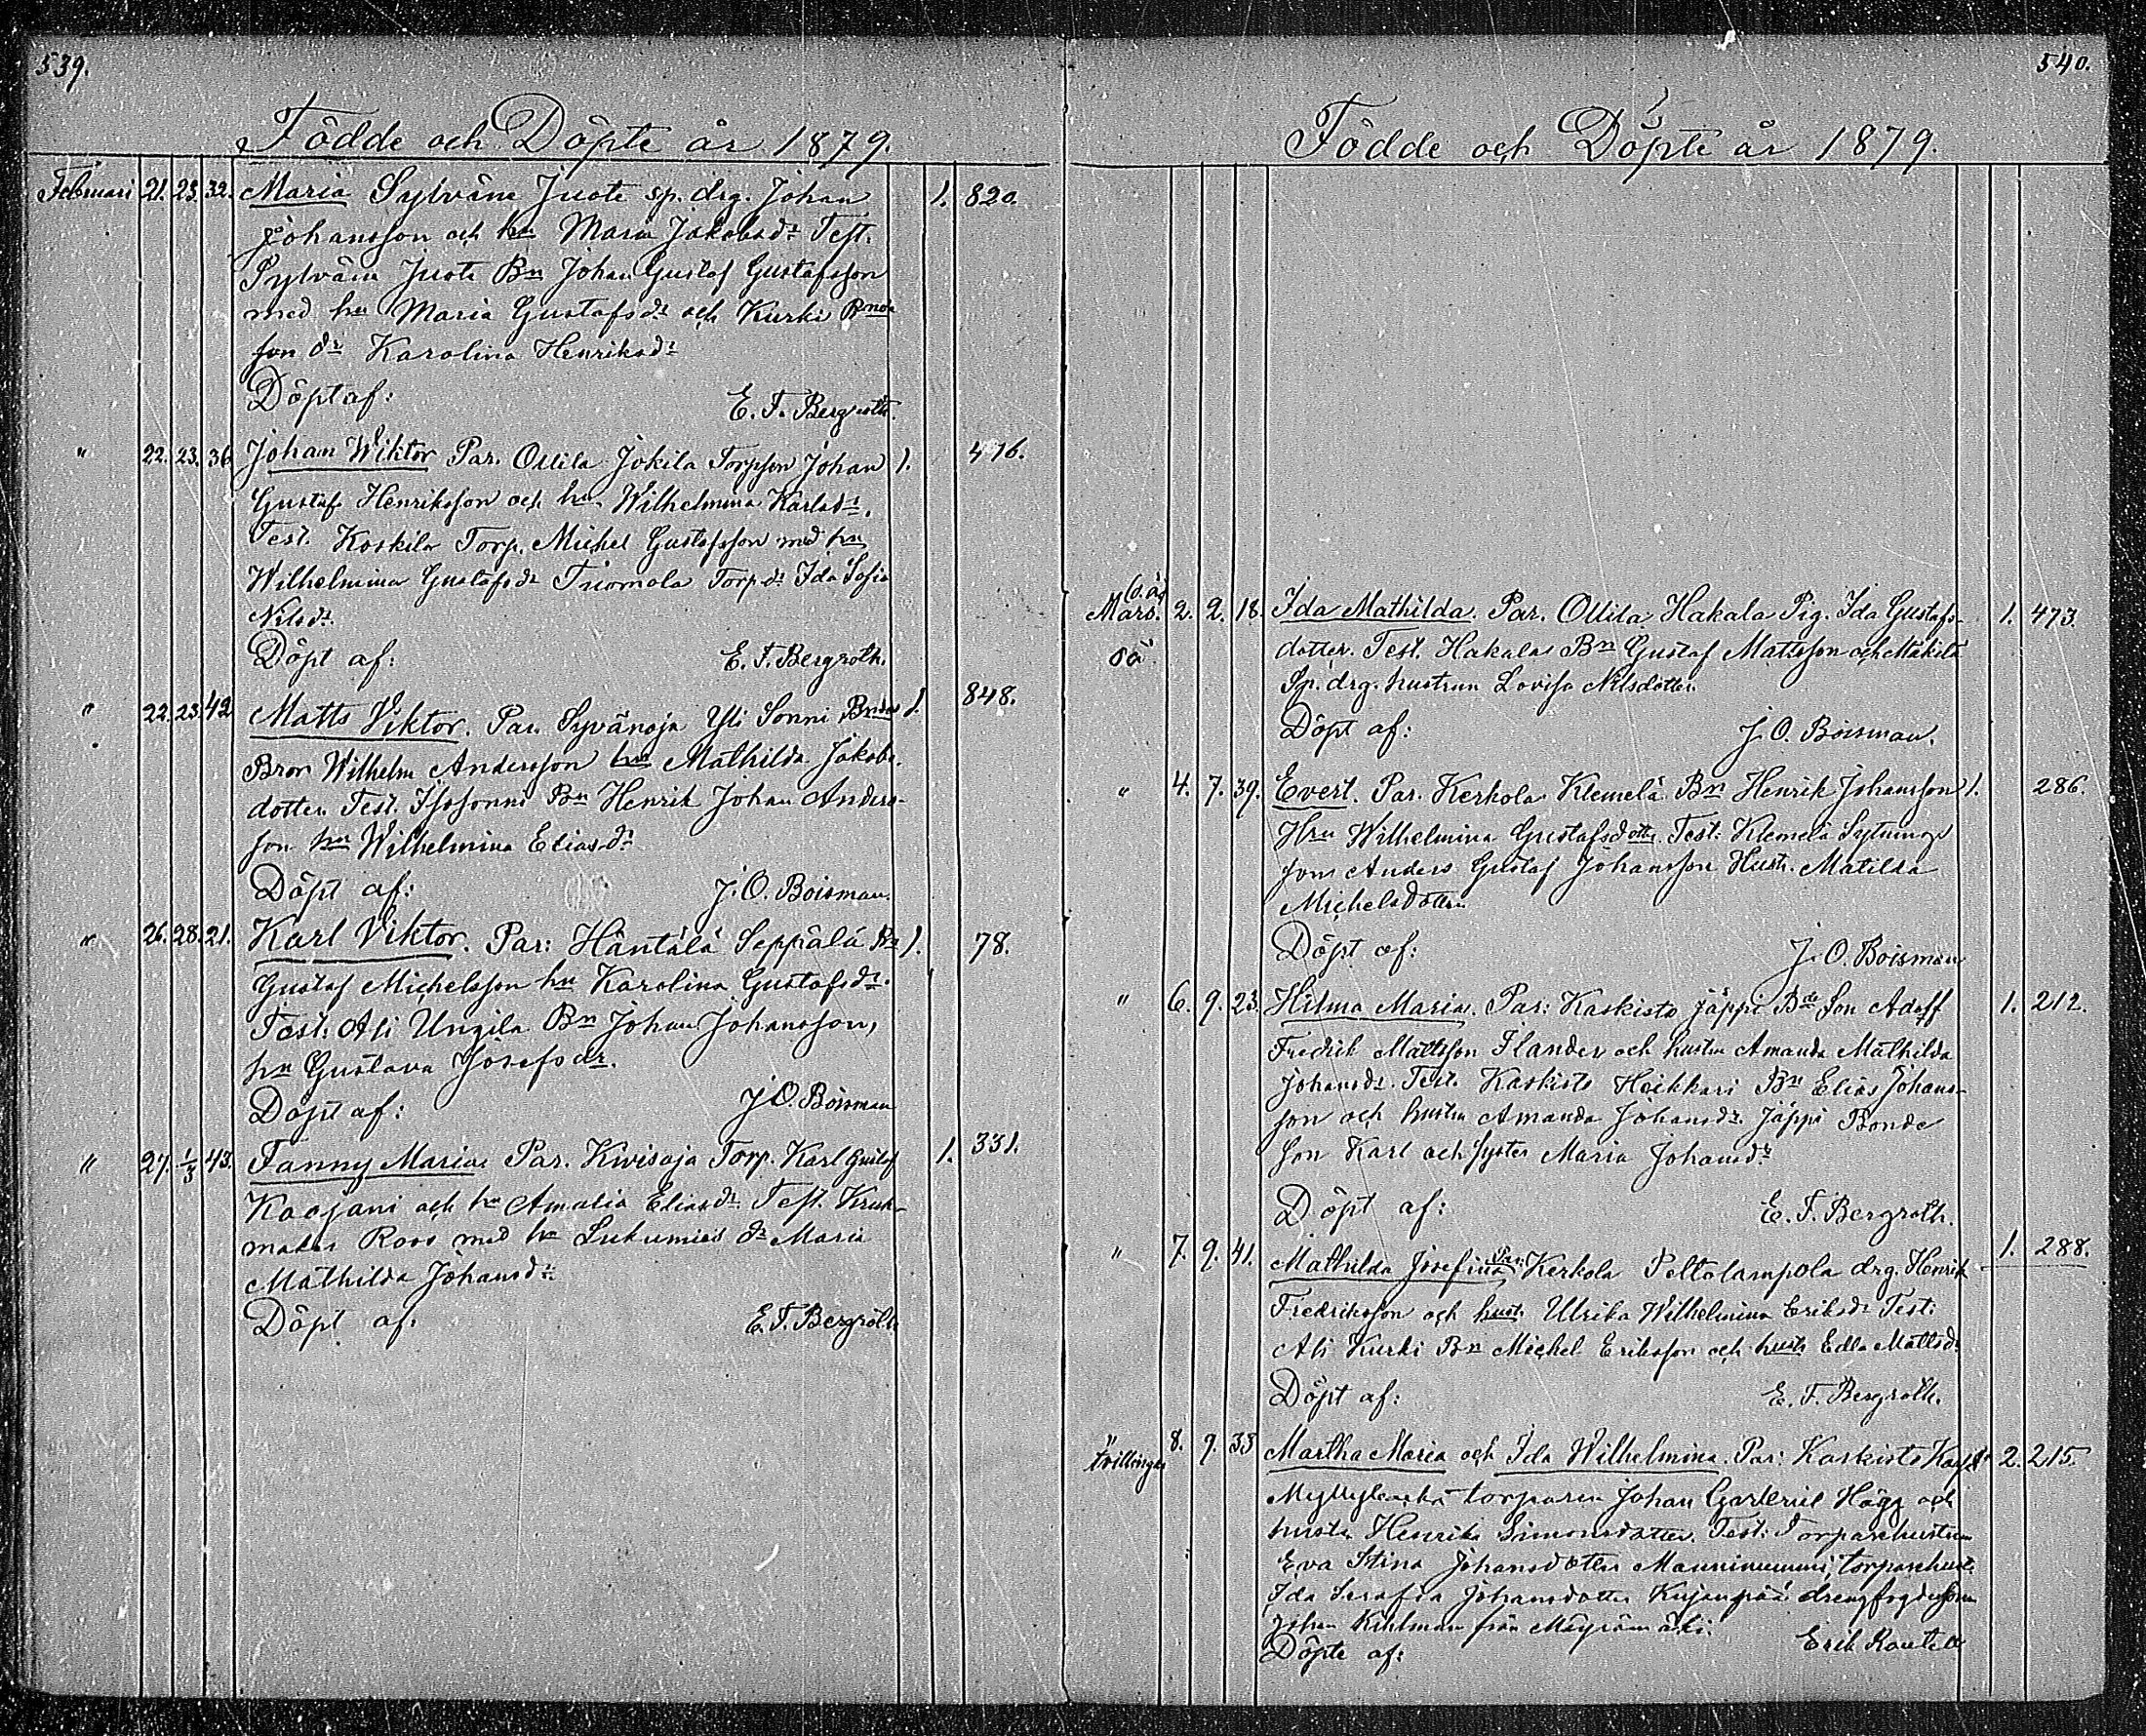 539.
Födde och Döpte år 1879.
Februari 21. 23. 32. Maria Sylväne Juote sp. drg. Johan 1. 820.
Johansson och hu Maria Jakobsdr Test.
Sylväne Juote Bn Johan Gustaf Gustafsson
med hu Maria Gustafsdr och Kurki
son dr Karolina Henriksdr
Döpt af: E. F. Bergroth.
" 22. 23. 36 Johan Wiktor Par. Ollila Jokila Torpson Johan 1. 476.
Gustaf Henriksson och hu Wilhelmina Karlsdr.
Test. Koskila Torp. Michel Gustafsson med hu
Wilhelmina Gustafsdr Tuomola Torp dr Ida Sofia
Nilsdr.
Döpt af: E. F. Bergroth.
" 22. 23. 42 Matts Viktor. Par. Syvänoja Yli Sonni 1. 848.
Bror Wilhelm Andersson hu Mathilda Jakobs-
dotter Test. Isosonni Bn Henrik Johan Anders-
son hu Wilhelmina Eliasdr
Döpt af: J. O. Boisman.
" 26. 28. 21. Karl Viktor. Par: Häntälä Seppälä Bn 1. 78.
Gustaf Michelsson hu Karolina Gustafsdr.
Test: Ali Ungila Bn Johan Johansson,
hu Gustava Josefsdr.
Döpt af: J. O. Boisman
" 27. 1/3 43. Fanny Maria Par. Kivisoja Torp. Karl Gustaf 1. 331.
Koojani och hu Amalia Eliasdr Test. Kruk-
makar Roos med hu dr Maria
Mathilda Johansdr
Döpt af: E. F. Bergroth
540.
Födde och Döpte år 1879.
Mars. 2. 2. 18. Ida Mathilda. Par. Ollila Hakala Pig. Ida Gustafs- 1. 473.
oä. dotter. Test. Hakala Bn Gustaf Mattsson och Mäkilä
Sp. drg. hustrun Lovisa Nilsdotter.
Döpt af: J. O. Boisman.
" 4. 7. 39. Evert. Par. Kerkola Klemelä Bn Henrik Johansson 1. 286.
Hru Wilhelmina Gustafsdotter. Test: Klemelä Sytnings
son Anders Gustaf Johansson Hust. Matilda
Michelsdotter.
Döpt af: J. O. Boisman
" 6. 9. 23. Hilma Maria. Par: Kaskisto Jäppi Bde Son Adolf 1. 212.
Fredrik Mattsson Ilander och hustru Amanda Mathilda
Johansdr. Test. Kaskisto Heikkari Bn Elias Johans-
son och hustru Amanda Johansdr. Jäppi Bonde
Son Karl och syster Maria Johansdr
Döpt af: E. F. Bergroth.
" 7. 9. 41. Mathilda Josefina Par: Kerkola Peltolampola drg. Henrik 1. 288.
Fredriksson och hust. Ulrika Wilhelmina Eriksdr Test:
Ali Kurki Bn Michel Eriksson och hust. Edla Mattsdr
Döpt af: E. F. Bergroth.
" 8. 9. 33 Martha Maria och Ida Wilhelmina. Par: Kaskisto 2. 215.
tvillingar torparen Johan Hägg och
hustru Henrika Simonsdotter. Test: Torparehustrun
Eva Stina Johansdotter torparehust.
Ida Serafia Johansdotter Kujanpää
Johan Kihlman från
Döpte af: